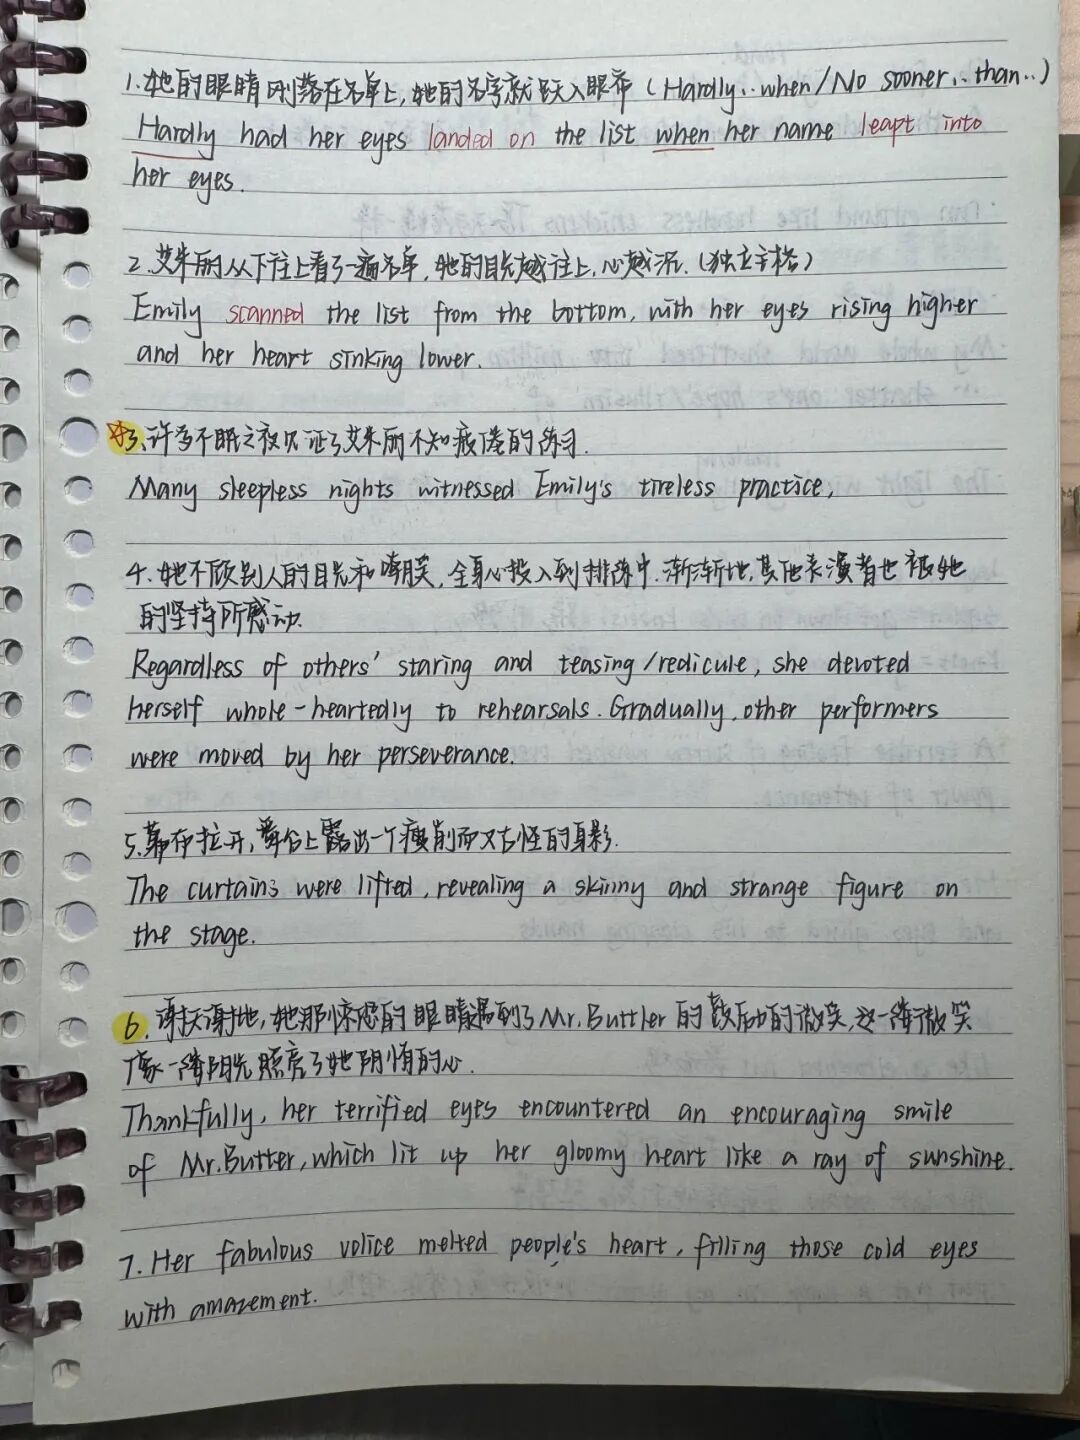 1.她的眼睛刚落在名单上,她的名字就跃入眼帘(Hardly...when/No sooner...than...)
Hardly had her eyes landed on the list when her name leapt into
her eyes.
2.艾米丽从下往上看了一遍名单,她的目光越往上,心越沉.(独立主格)
Emily scanned the list from the bottom, with her eyes rising higher
and her heart sinking lower.
3.许多不眠之夜见证了艾米丽不知疲倦的练习.
Many sleepless nights witnessed Emily's tireless practice,
4.她不顾别人的目光和嘲笑,全身心投入到排练中.渐渐地,其他表演者也被她
的坚持所感动.
Regardless of others' staring and teasing/redicule, she devoted
herself whole-heartedly to rehearsals. Gradually, other performers
were moved by her perseverance.
5.幕布拉开,舞台上露出一个瘦削而又古怪的身影.
The curtains were lifted, revealing a skinny and strange figure on
the stage.
6.谢天谢地,她那惊恐的眼睛遇到了Mr.Buttler的鼓励的微笑,这一缕微笑
像一缕阳光照亮了她阴惰的心.
Thankfully, her terrified eyes encountered an encouraging smile
of Mr.Butter, which lit up her gloomy heart like a ray of sunshine.
7.Her fabulous volice melted people's heart, filling those cold eyes
with amazement.